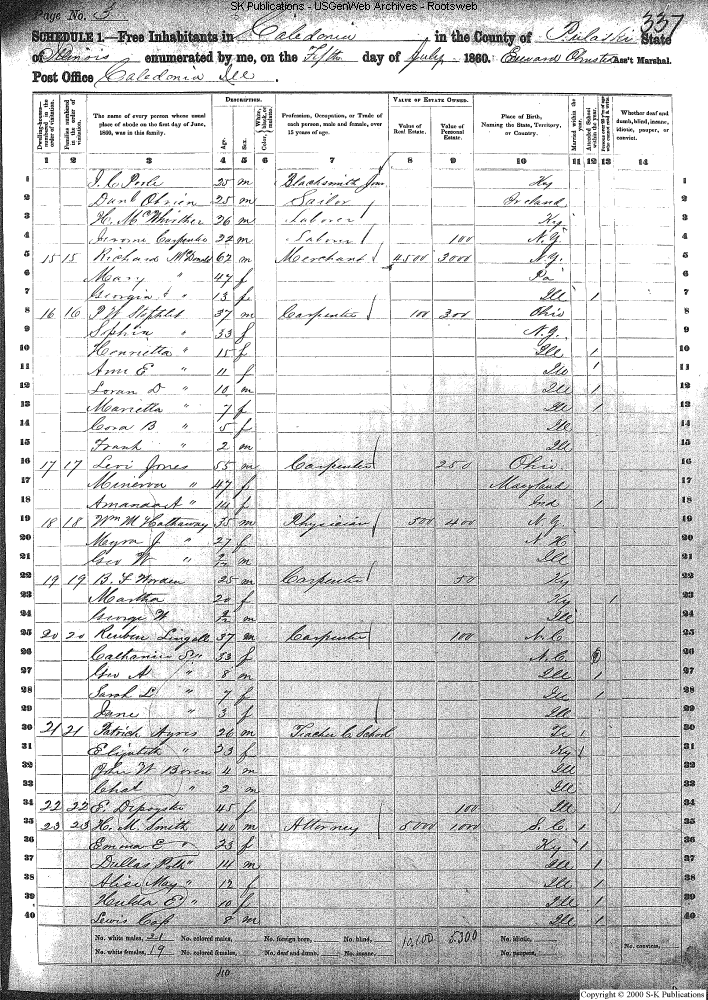 SK Publications - USGenWeb Archives - Rootsweb
Page No. 3
337
SCHEDULE 1.—Free Inhabitants in Caledonia in the County of Pulaski State
of Illinois enumerated by me, on the Fifth day of July 1860. Edward Ass't Marshal.
Post Office Caledonia Ill.
Dwelling-houses—numbered in the order of visitation.
Families numbered in the order of visitation.
The name of every person whose usual place of abode on the first day of June, 1860, was in this family.
DESCRIPTION.
Age. Sex. Color, White, black, or mulatto.
Profession, Occupation, or Trade of each person, male and female, over 15 years of age.
VALUE OF ESTATE OWNED.
Value of Real Estate. Value of Personal Estate.
Place of Birth, Naming the State, Territory, or Country.
Married within the year. Attended School within the year.
Whether deaf and dumb, blind, insane, idiotic, pauper, or convict.
1 2 3 4 5 6 7 8 9 10 11 12 13 14
1 Poole 25 m Blacksmith Ky 1
2 Danl Obrien 25 m Sailor Ireland 2
3 H. McWhirther 26 m Laborer Ky 3
4 Jerome Carpenter 22 m Laborer 100 N.Y. 4
5 15 15 Richard McDonald 62 m Merchant 4500 3000 N.Y. 5
6 Mary " 47 f Pa 6
7 Georgia " 13 f Ill 1 7
8 16 16 37 m Carpenter 100 300 Ohio 8
9 " 33 f N.Y. 9
10 Henrietta " 15 f Ill 1 10
11 Ann E " 11 f Ill 1 11
12 Loran D " 10 m Ill 1 12
13 Marietta " 7 f Ill 1 13
14 Cora B " 5 f Ill 14
15 Frank " 2 m Ill 15
16 17 17 Levi Jones 55 m Carpenter 250 Ohio 16
17 Minerva " 47 f Maryland 17
18 " 14 f Ind 1 18
19 18 18 Wm M Hathaway 35 m Physician 500 400 N.Y. 19
20 Myra J " 27 f N.H. 20
21 Geo W " m Ill 21
22 19 19 B. F Worden 25 m Carpenter 50 Ky 22
23 Martha 20 f Ky 1 23
24 George W m Ill 24
25 20 20 Reuben Lingall 37 m Carpenter 100 N.C. 25
26 " 33 f N.C. 26
27 Geo A " 8 m Ill 1 27
28 Sarah L " 7 f Ill 1 28
29 Jane " 3 f Ill 29
30 21 21 Patrick Ayres 26 m Teacher C. School 30
31 Elizabeth " 23 f Ky 1 31
32 John W Boren 4 m Ill 32
33 Chas " 2 m Ill 33
34 22 22 E. Depoyster 45 f 100 Ill 34
35 23 23 H. M. Smith 40 m Attorney 5000 1000 S.C. 1 35
36 Emma E " 23 f Ky 1 36
37 Dallas " 14 m Ill 1 37
38 Alice May " 12 f Ill 1 38
39 Hulda E " 10 f Ill 1 39
40 Lewis Cass 8 m Ill 1 40
No. white males, 21 No. colored males, No. foreign born, No. blind, 10,100 5300 No. idiotic,
No. white females, 19 No. colored females, No. deaf and dumb, No. insane, No. paupers, No. convicts,
40
Copyright © 2000 S-K Publications